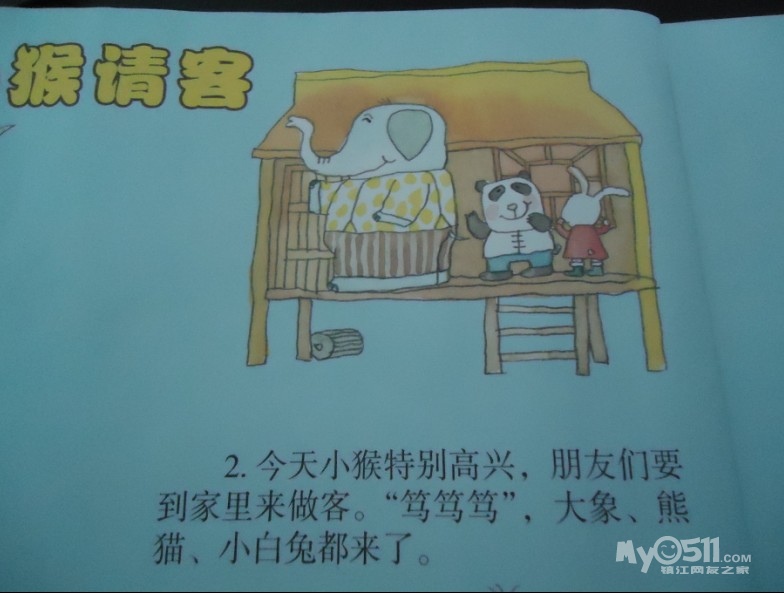 猴请客
2. 今天小猴特别高兴，朋友们要
到家里来做客。“笃笃笃”，大象、熊
猫、小白兔都来了。
My0511.COM
镇江网友之家